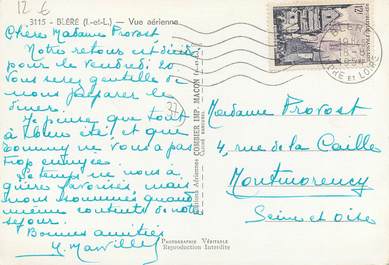 12 €
3115 - BLÉRÉ (I.-et-L.) — Vue aérienne
Chère Madame Provost
Notre retour est
pour le Vendredi 20
Vous serez gentille de
nous préparer le
dîner.
Je pense que tout
a bien été, et que
ne vous a pas
trop ennuyée.
Le temps ne nous a
guère favorisés, mais
nous sommes quand
même contents de notre
séjour.
Bonnes amitiés
37
Editions Aériennes COMBIER IMP. MACON
12F
INDRE ET LOIRE
Madame Provost
4, rue de la Caille
Montmorency
Seine et Oise
PHOTOGRAPHIE VÉRITABLE
Reproduction Interdite